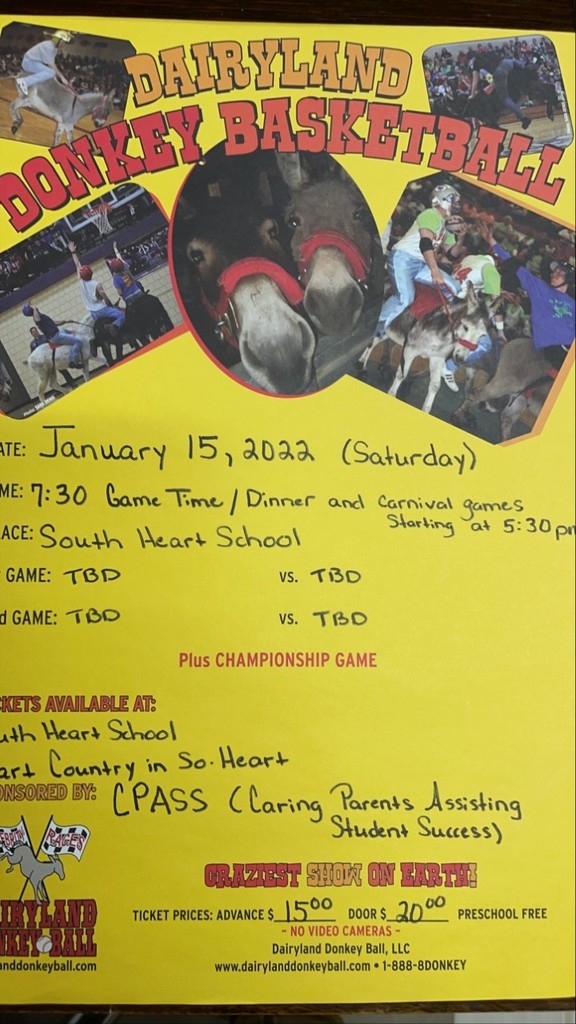 DAIRYLAND
DONKEY BASKETBALL
ATE: January 15, 2022 (Saturday)
ME: 7:30 Game Time / Dinner and Carnival games
Starting at 5:30 pm
ACE: South Heart School
GAME: TBD vs. TBD
d GAME: TBD vs. TBD
Plus CHAMPIONSHIP GAME
KETS AVAILABLE AT:
uth Heart School
art Country in So. Heart
ONSORED BY: CPASS (Caring Parents Assisting
Student Success)
RACES
CRAZIEST SHOW ON EARTH!
IRYLAND
NKEY BALL
TICKET PRICES: ADVANCE $ 15.00 DOOR $ 20.00 PRESCHOOL FREE
- NO VIDEO CAMERAS -
Dairyland Donkey Ball, LLC
anddonkeyball.com
www.dairylanddonkeyball.com • 1-888-8DONKEY